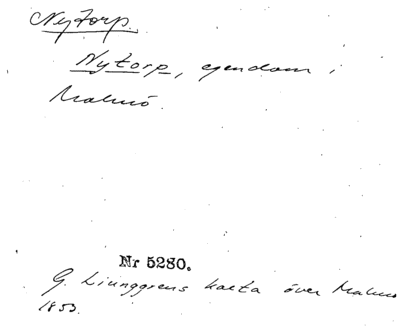 Nytorp.
Nytorp, egendom i
Malmö.
Nr 5280.
G. Ljunggrens karta över Malmö
1853.